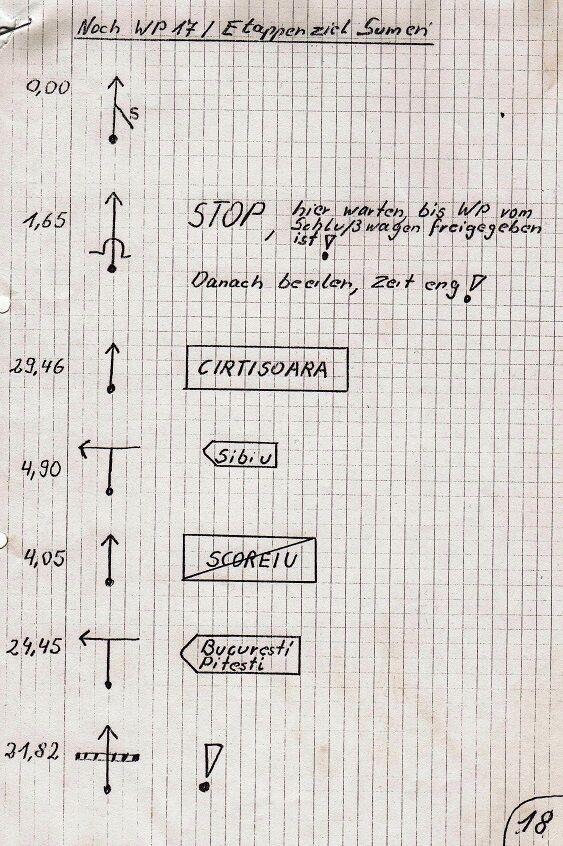 Noch WP 17 / Etappenziel Sumeri
0,00
S
1,65
STOP, hier warten, bis WP vom
Schlußwagen freigegeben
ist!
Danach beeilen, Zeit eng!
29,46
CIRTISOARA
4,90
Sibiu
4,05
SCOREIU
24,45
Bucuresti
Pitesti
21,82
!
18